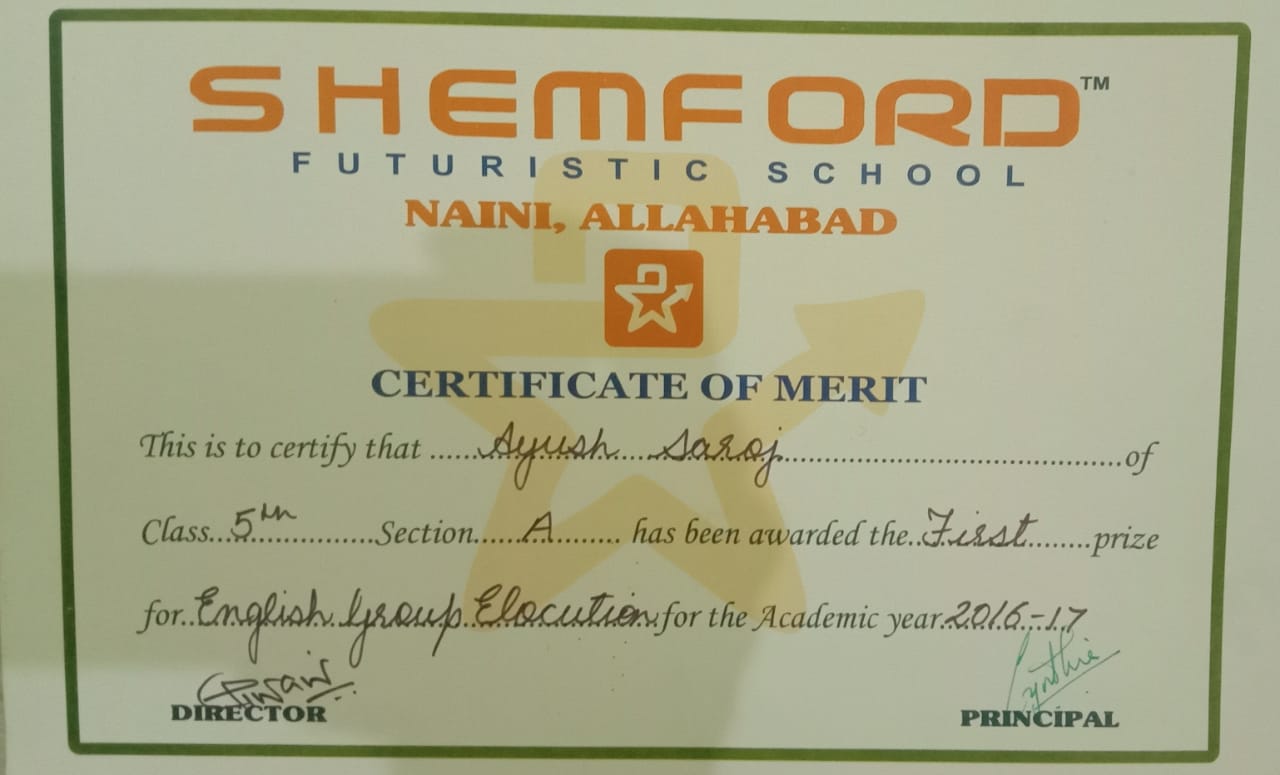 SHEMFORD™
FUTURISTIC SCHOOL
NAINI, ALLAHABAD
CERTIFICATE OF MERIT
This is to certify that ......Ayush....Saroj..........................................of
Class...5th...............Section......A......... has been awarded the..First........prize
for..English Group Elocution.for the Academic year.2016-17
Cynthia
DIRECTOR
PRINCIPAL